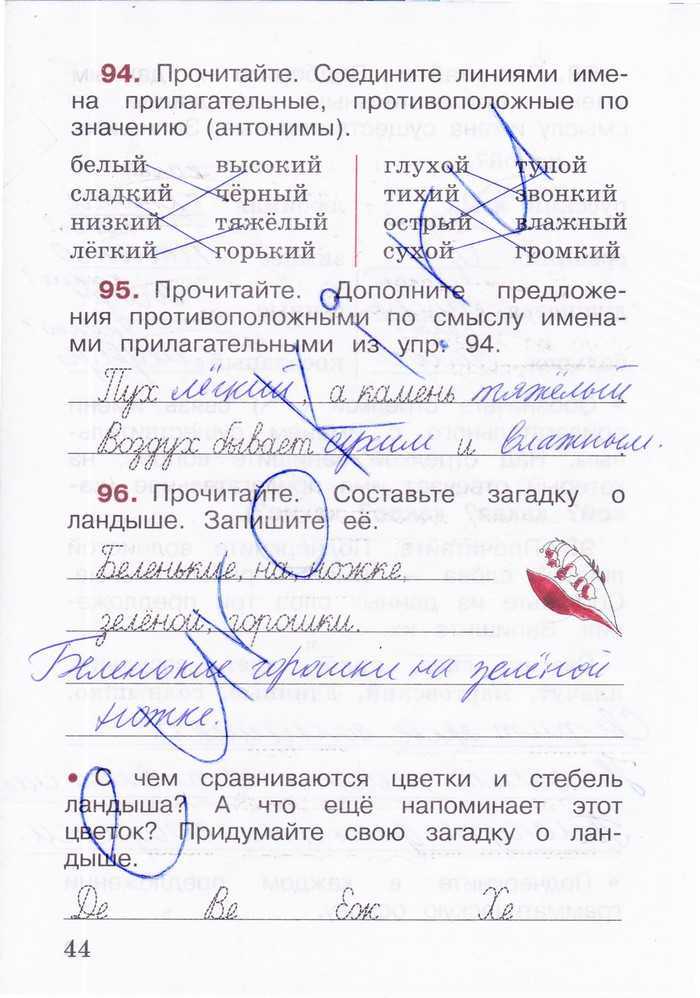 94. Прочитайте. Соедините линиями име-
на прилагательные, противоположные по
значению (антонимы).
белый высокий глухой тупой
сладкий чёрный тихий звонкий
низкий тяжёлый острый влажный
лёгкий горький сухой громкий
95. Прочитайте. Дополните предложе-
ния противоположными по смыслу имена-
ми прилагательными из упр. 94.
Пух лёгкий, а камень тяжелый
Воздух бывает сухим и влажным.
96. Прочитайте. Составьте загадку о
ландыше. Запишите её.
Беленькие, на, ножке,
зелёной, горошки.
Беленькие горошки на зелёной
ножке.
• С чем сравниваются цветки и стебель
ландыша? А что ещё напоминает этот
цветок? Придумайте свою загадку о лан-
дыше.
Де Ве Ёж Хе
44